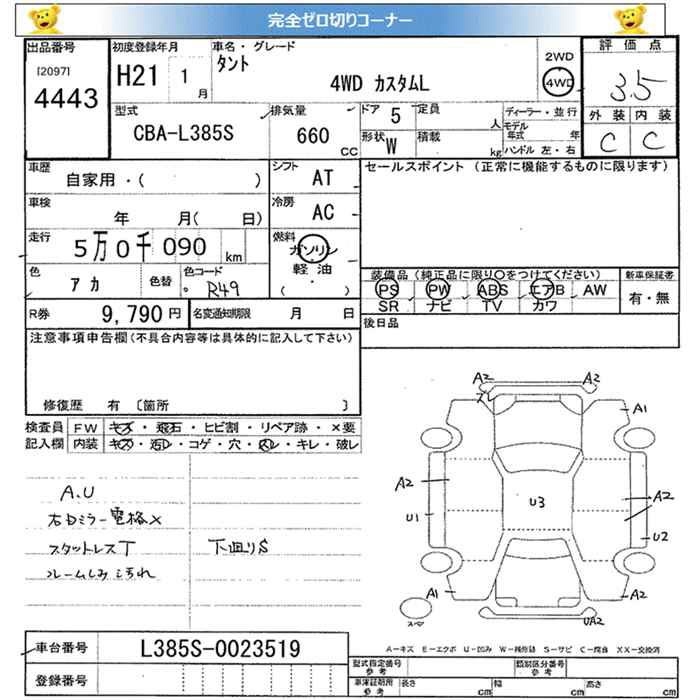 完全ゼロ切りコーナー
出品番号 初度登録年月 車名・グレード 評価点
[2097] タント 2WD
4443 H21 1月 4WD カスタムL 4WD 3.5
型式 排気量 ドア 5 定員 人 ディーラー・並行 外装 内装
CBA-L385S 660 CC 形状 W 積載 kg モデル年式 年 C C
ハンドル 左・右
車歴 シフト セールスポイント (正常に機能するものに限ります)
自家用・( ) AT
車検 冷房
年 月( 日) AC
走行 燃料
5万0千090 km ガソリン
軽油
( )
色 色替 色コード 装備品(純正品に限り○をつけてください) 新車保証書
アカ R49 PS PW ABS エアB AW 有・無
SR ナビ TV カワ
R券 9,790円 名変通知期限 月 日 後日品
注意事項申告欄(不具合内容等は具体的に記入して下さい)
修復歴 有 〔箇所 〕
検査員 FW キズ・飛石・ヒビ割・リペア跡・×要
記入欄 内装 キズ・汚レ・コゲ・穴・スレ・キレ・破レ
A.U
右Dミラー電格×
スタットレスT 下廻りS
ルームしみ汚れ
A2 A2
A1
A2 U3 A2
U1 U2
A1 A2
スペ UA2
A-キズ E-エクボ U-凹み W-補修跡 S-サビ C-腐食 XX-交換済
車台番号 L385S-0023519
登録番号
型式指定番号 参考 類別区分番号 参考
車庫証明用 参考 長さ cm 幅 cm 高さ cm